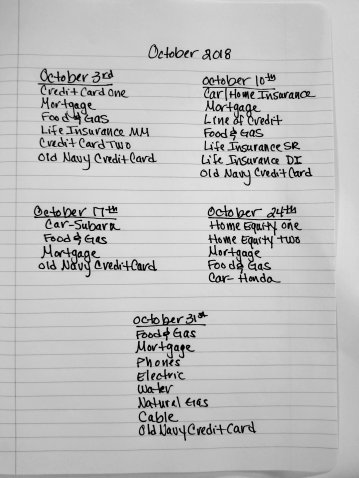 October 2018
October 3rd
Credit Card One
Mortgage
Food & Gas
Life Insurance MM
Credit Card Two
Old Navy Credit Card
October 10th
Car/Home Insurance
Mortgage
Line of Credit
Food & Gas
Life Insurance SR
Life Insurance DI
Old Navy Credit Card
October 17th
Car-Subaru
Food & Gas
Mortgage
Old Navy Credit Card
October 24th
Home Equity One
Home Equity Two
Mortgage
Food & Gas
Car-Honda
October 31st
Food & Gas
Mortgage
Phones
Electric
Water
Natural Gas
Cable
Old Navy Credit Card